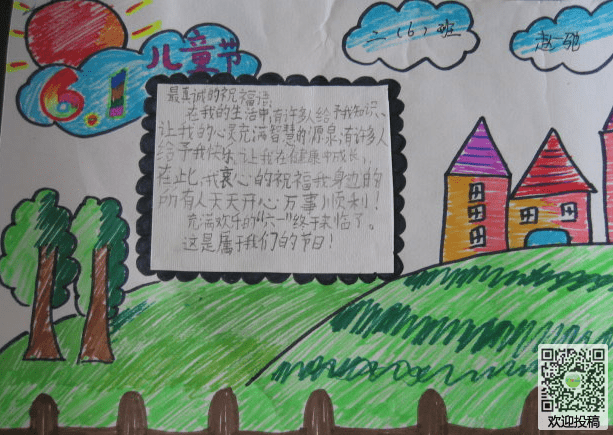 6.1
儿童节
二(6)班
赵一驰
最真诚的祝福语:
在我的生活中,有许多人给予我知识、
让我的心灵充满智慧的源泉;有许多人
给予我快乐,让我在健康中成长,
在此,我衷心的祝福我身边的
所有人天天开心,万事顺利!
充满欢乐的“六一”终于来临了。
这是属于我们的节日!
欢迎投稿